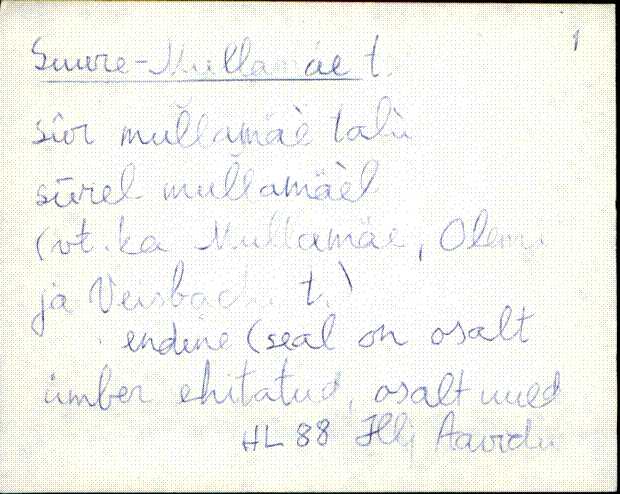 1
Suure-Mullamäe t.
sūr mullamäè talù
sūrel mullamäèl
(vt. ka Mullamäe, Olemi
ja Veisbachi t.)
endine (seal on osalt
ümber ehitatud, osalt uued
HL 88 Aavidu